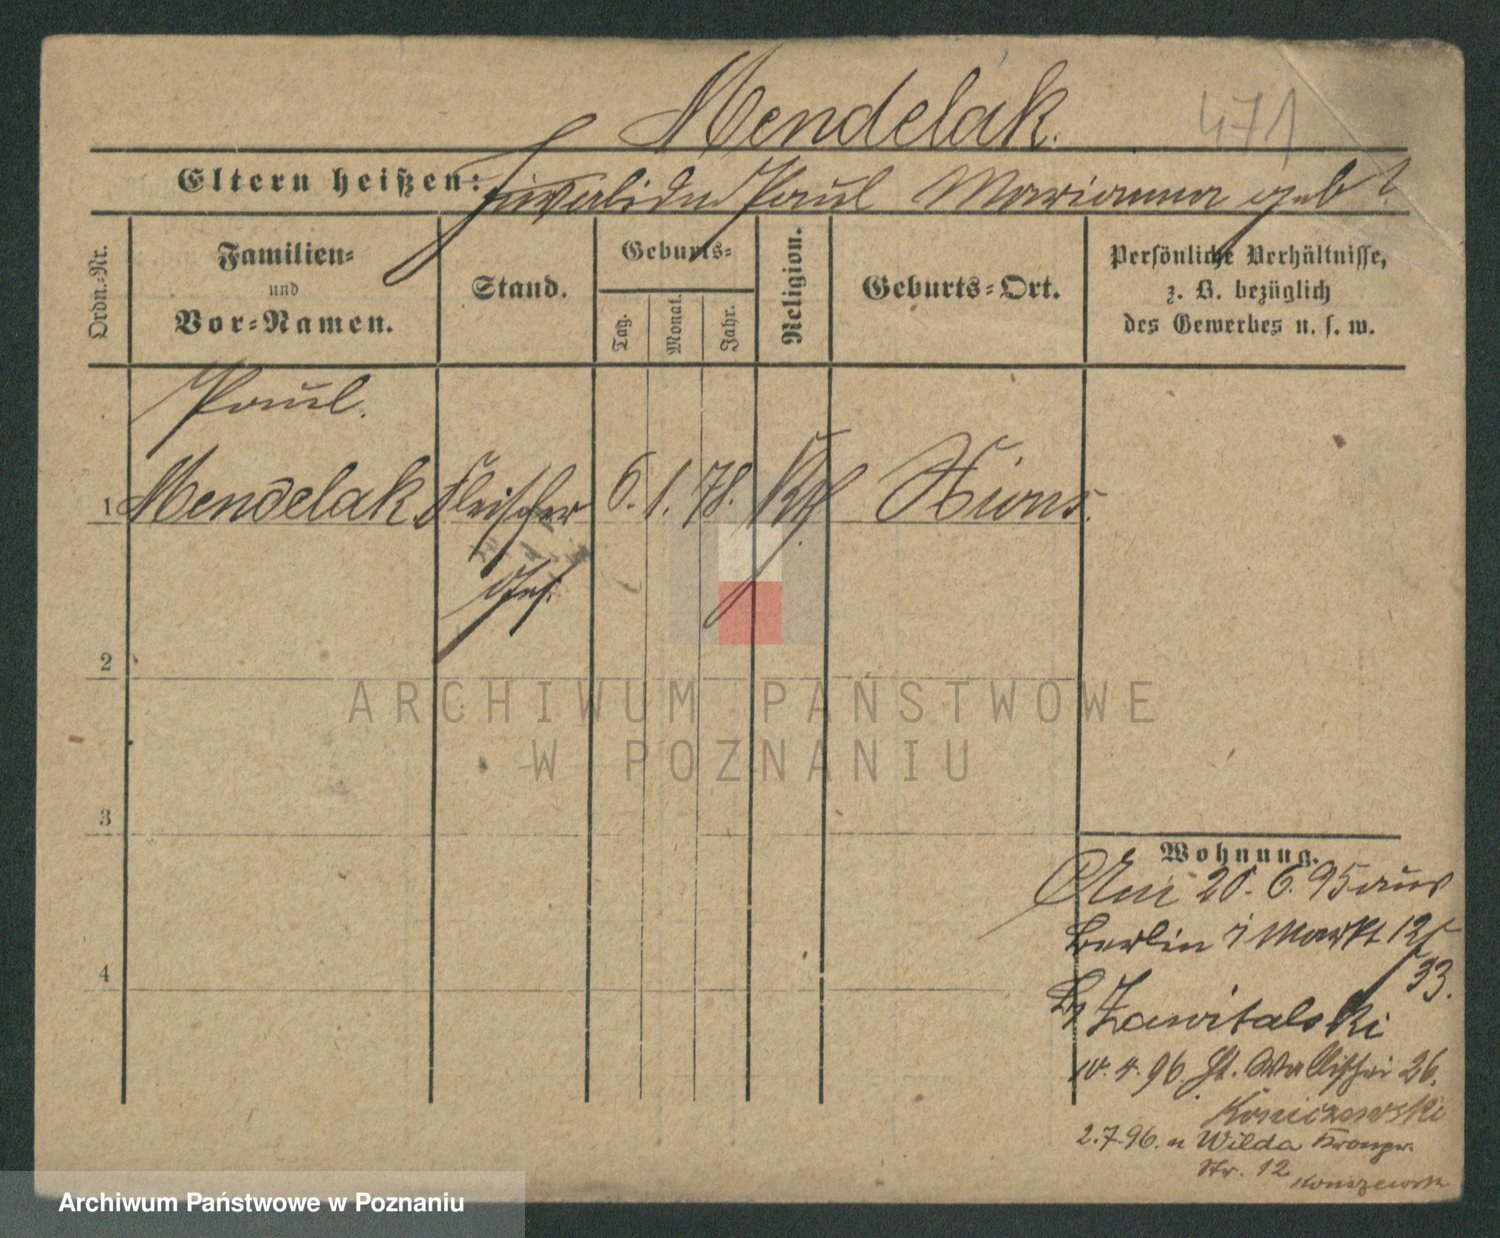 Mendelak.
471
Eltern heißen: Invaliden Paul Marianna geb ?
Ordn.-Nr.
Familien-
und
Vor-Namen.
Stand.
Geburts-
Tag.
Monat.
Jahr.
Religion.
Geburts-Ort.
Persönliche Verhältnisse,
z. B. bezüglich
des Gewerbes u. s. w.
Paul.
1 Mendelak Fleischer 6. 1. 78. Kth Xions.
Ges.
2
3
4
Wohnung.
Am 20. 6. 95 aus
Berlin Markt
33.
Zawitalski
10. 4. 96. St. Wallischei 26.
Koniczewski
2.7.96. n Wilda Kronpr.
Str. 12
ARCHIWUM PAŃSTWOWE
W POZNANIU
Archiwum Państwowe w Poznaniu